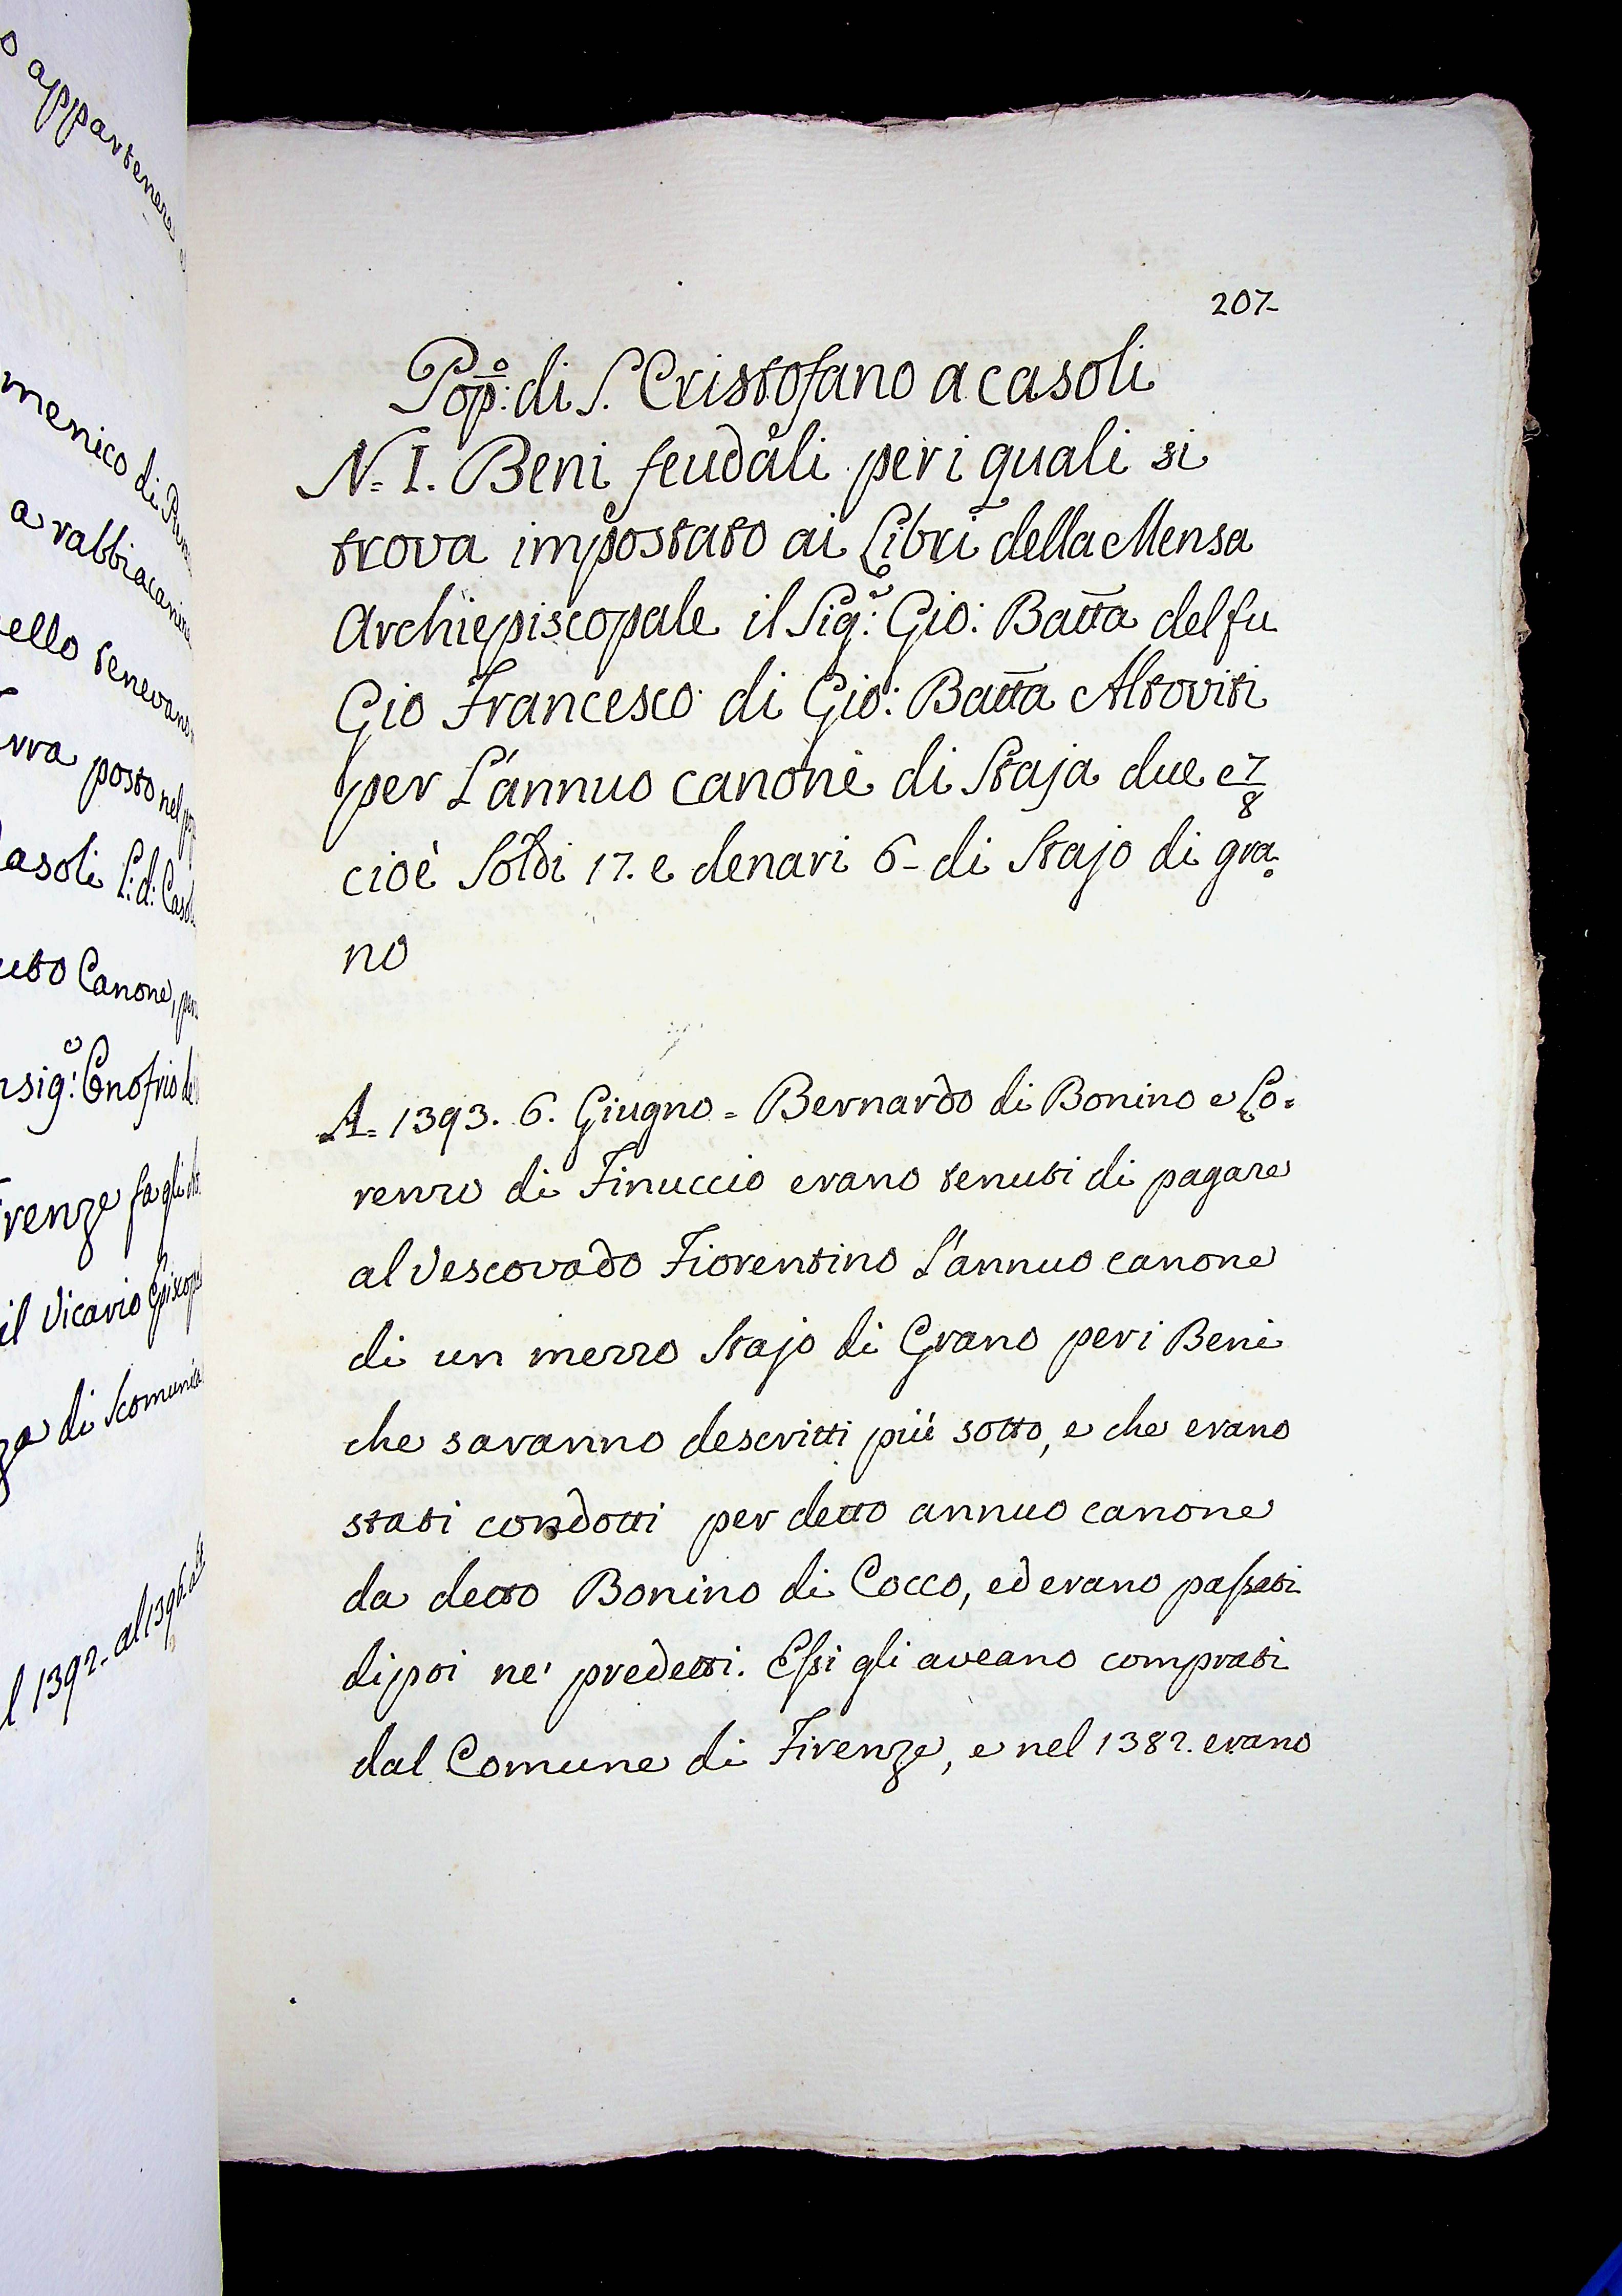 o appartenere
menico di
a rabbiacanina
ello tenevano
rra posto nel
asoli L: d: Casol
uto Canone,
nsig:º Onofrio de
renze fa gli
il Vicario Episcopal
za di Scomunica
l 1392. al 1396.
207-
Popº: di S. Cristofano a casoli
N. I. Beni feudali per i quali si
trova impostato ai Libri della Mensa
Archiepiscopale il Sigr: Gio: Batta del fu
Gio Francesco di Gio: Batta Altoviti
per L'annuo canone di Staja due e 7/8
cioè Soldi 17. e denari 6- di Stajo di gra=
no
A. 1393. 6. Giugno = Bernardo di Bonino e Lo=
renzo di Finuccio erano tenuti di pagare
al Vescovado Fiorentino L'annuo canone
di un mezzo Stajo di Grano per i Beni
che saranno descritti più sotto, e che erano
stati condotti per detto annuo canone
da detto Bonino di Cocco, ed erano passati
dipoi ne' predetti. Essi gli aveano comprati
dal Comune di Firenze, e nel 1382. erano